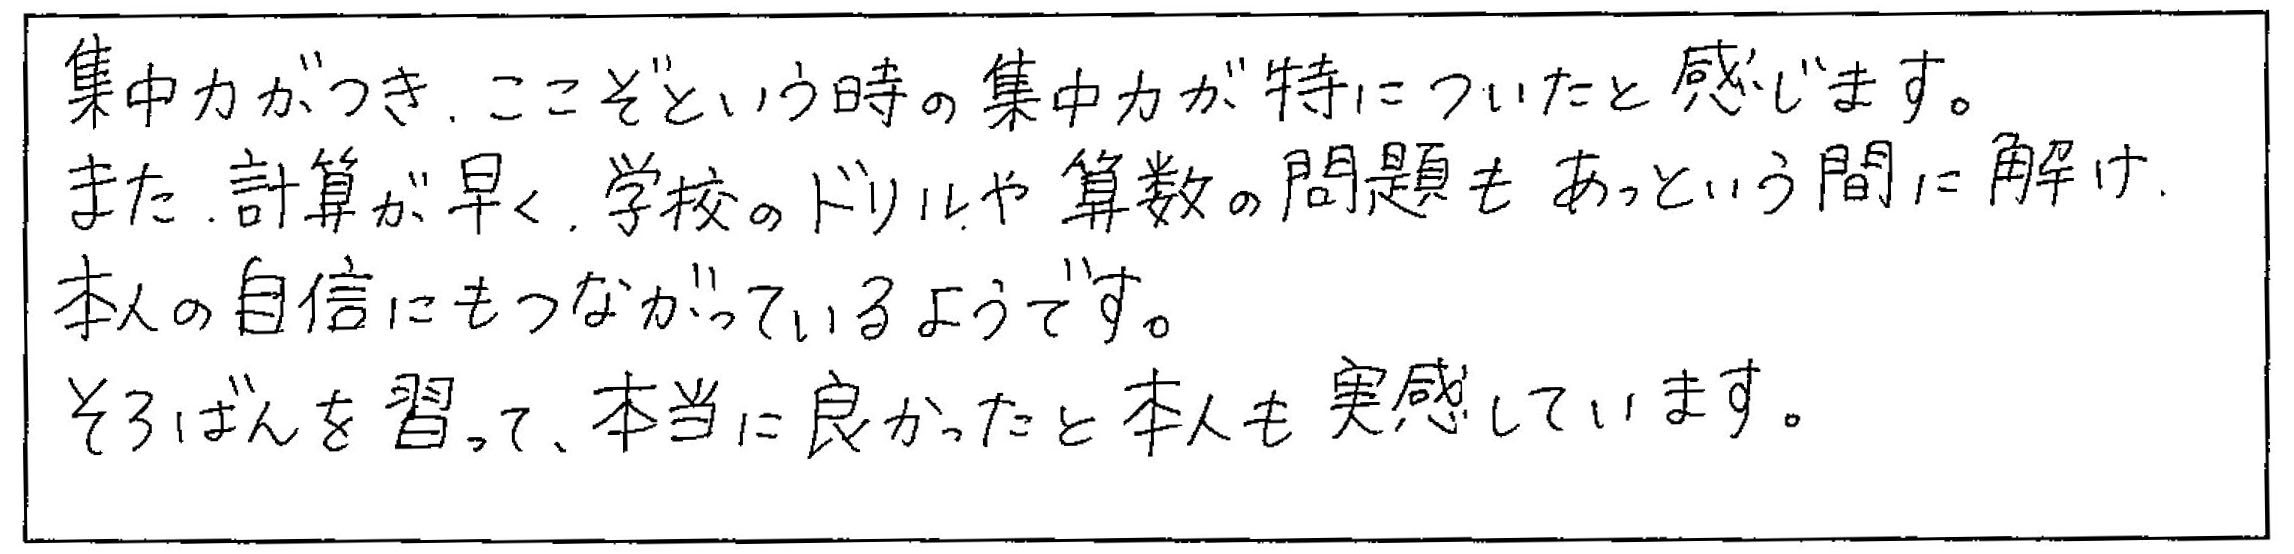 集中力がつき、ここぞという時の集中力が特についたと感じます。
また、計算が早く、学校のドリルや算数の問題もあっという間に解け、
本人の自信にもつながっているようです。
そろばんを習って、本当に良かったと本人も実感しています。